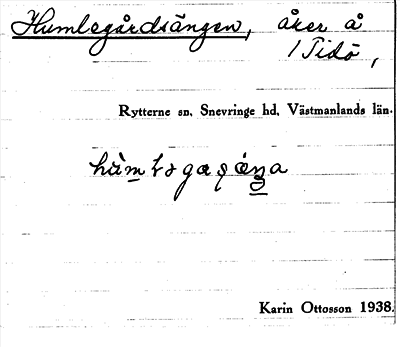 Humlegårdsängen, åker å
1 Tidö,
Rytterne sn, Snevringe hd, Västmanlands län.
Karin Ottosson 1938.